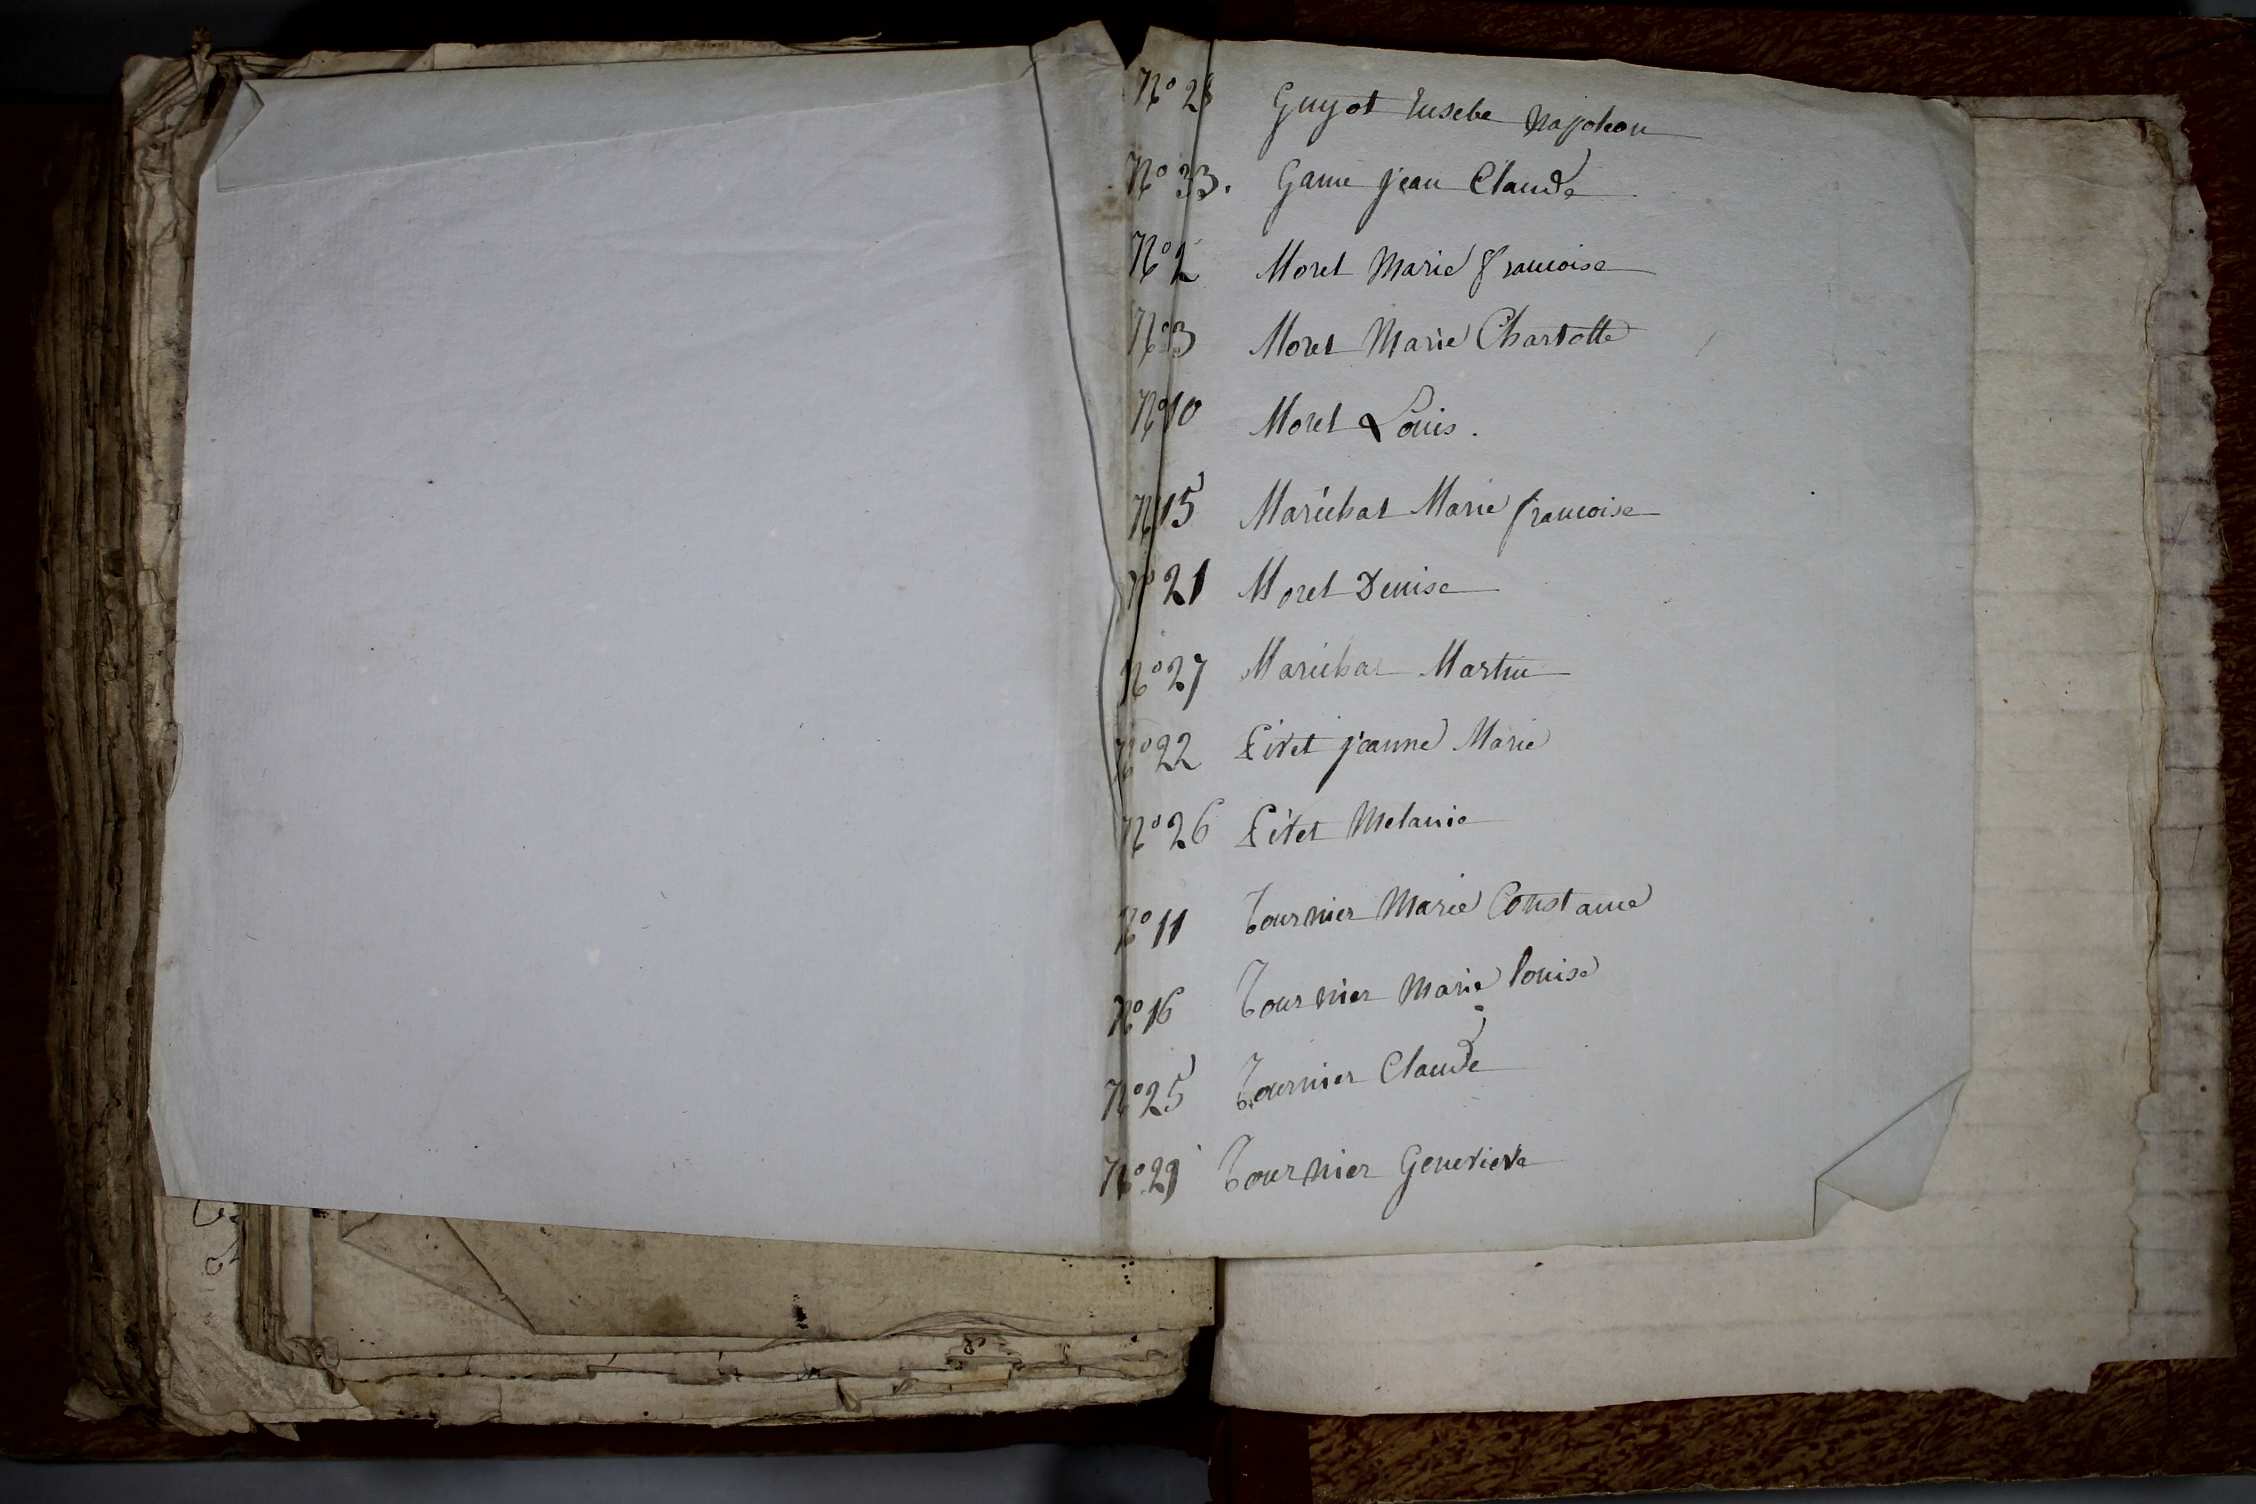 No 28 Guyot Eusebe Napoleon
No 33. Game jean Claude
No 2 Moret Marie francoise
No 3 Moret Marie Charlotte
No 10 Moret Louis.
No 15 Maréchal Marie francoise
No 21 Moret Denise
No 27 Maréchal Martin
No 22 jeanne Marie
No 26 Melanie
No 11 Tournier Marie Constance
No 16 Tournier Marie louise
No 25 Tournier Claude
No 29 Tournier Genevieve